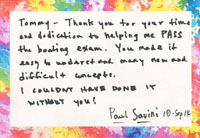 Tommy - Thank you for your time
and dedication to helping me PASS
the boating exam. You made it
easy to understand many new and
difficult concepts.
I COULDN'T HAVE DONE IT
WITHOUT YOU!
Paul Savini 18-Sep-14